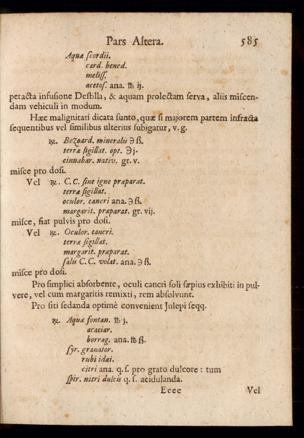 Pars Altera. 585
Aquæ scordii.
card. bened.
meliss.
acetos. ana. ℔ ij.
peracta infusione Destilla, & aquam prolectam serva, aliis miscen-
dam vehiculi in modum.
Hæc malignitati dicata sunto, quæ si majorem partem infracta
sequentibus vel similibus ulterius subigatur, v. g.
℞. Bezoard. mineralis ℈ ß.
terræ sigillat. opt. ℈ j.
cinnabar. nativ. gr. v.
misce pro dosi.
Vel ℞. C. C. sine igne præparat.
terræ sigillat.
oculor. cancri ana. ℈ ß.
margarit. præparat. gr. vij.
misce, fiat pulvis pro dosi.
Vel ℞. Oculor. cancri.
terræ sigillat.
margarit. præparat.
salis C. C. volat. ana. ℈ ß.
misce pro dosi.
Pro simplici absorbente, oculi cancri soli sæpius exhibiti in pul-
vere, vel cum margaritis remixti, rem absolvunt.
Pro siti sedanda optimè convenient Julepi seqq.
℞. Aquæ fontan. ℔ j.
acaciar.
borrag. ana. ℔ ß.
syr. granator.
rubi idæi.
citri ana. q. s. pro grato dulcore : tum
spir. nitri dulcis q. s. acidulanda.
Eeee Vel